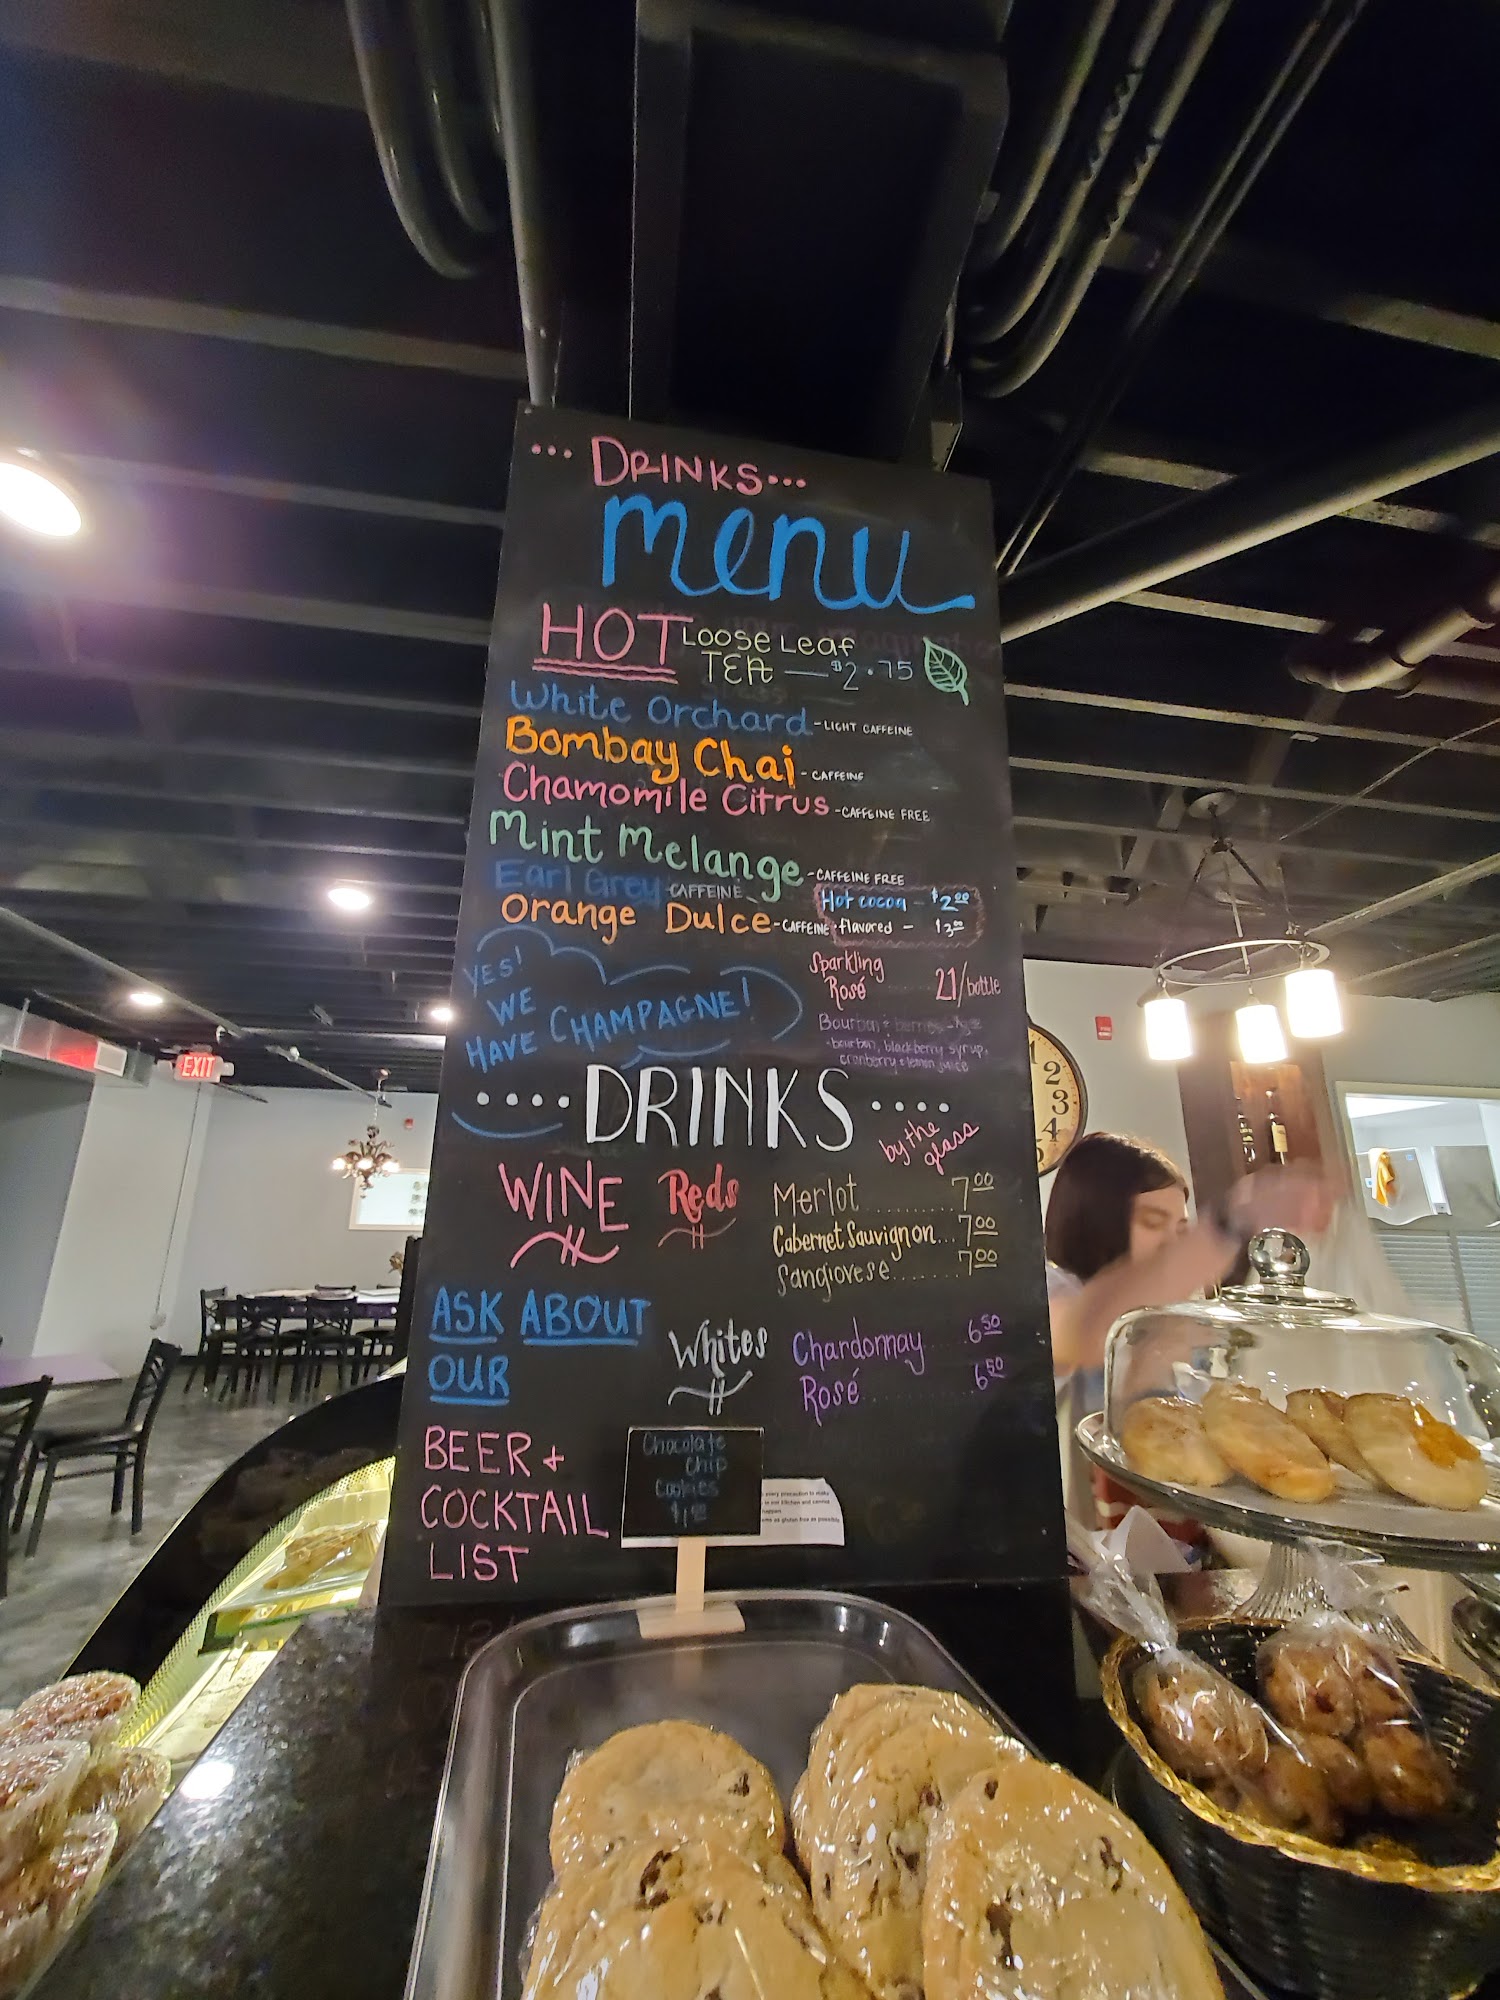 ... DRINKS...
menu
HOT LOOSE LEAF
TEA — $2.75
White Orchard - LIGHT CAFFEINE
Bombay Chai - CAFFEINE
Chamomile Citrus - CAFFEINE FREE
Mint Melange - CAFFEINE FREE
Earl Grey - CAFFEINE
Orange Dulce - CAFFEINE
Hot cocoa - $2.00
flavored - $3.00
YES!
WE
HAVE CHAMPAGNE!
Sparkling
Rosé ...... 21/bottle
Bourbon + berries
- bourbon, blackberry syrup,
cranberry + lemon juice
.... DRINKS ....
by the
glass
WINE
Reds
Merlot .......... 7.00
Cabernet Sauvignon... 7.00
Sangiovese....... 7.00
Whites
Chardonnay ... 6.50
Rosé ............ 6.50
ASK ABOUT
OUR
BEER +
COCKTAIL
LIST
Chocolate
Chip
Cookies
$1.00
every precaution to make
in our kitchen and cannot
happen.
as gluten free as possible
EXIT
1
2
3
4
5